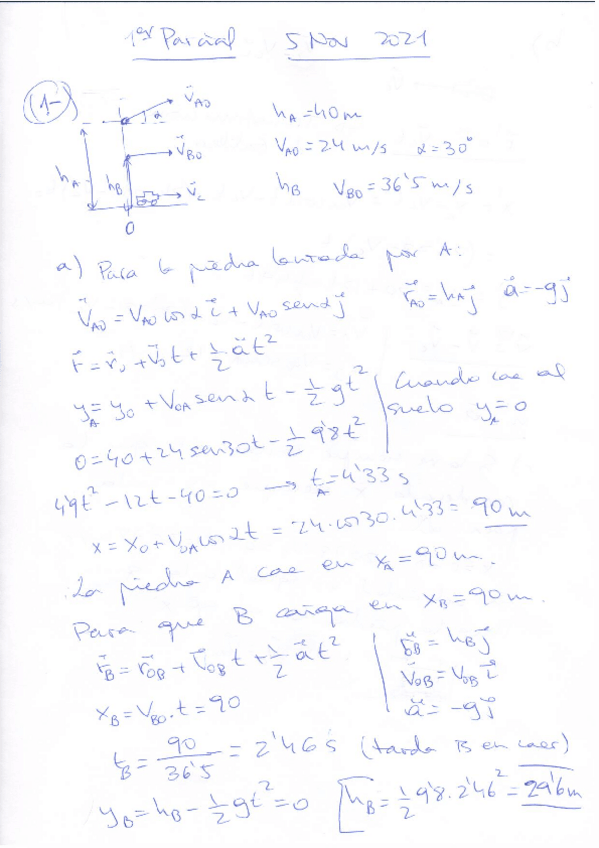 1er Parcial 5 Nov 2021
1-
v⃗A0 α hA=40m
v⃗B0 VA0=24 m/s α=30°
hA hB v⃗c hB VB0=36'5 m/s
O
a) Para la piedra lanzada por A:
V⃗A0=VA0 cos α i⃗+VA0 sen α j⃗ r⃗A0=hA j⃗ a⃗=-g j⃗
r⃗=r⃗0+v⃗0t+½ a⃗t²
yA=y0+V0A sen α t-½ gt² Cuando cae al
suelo yA=0
0=40+24 sen30t-½ 9'8t²
4'9t²-12t-40=0 → tA=4'33 s
x=x0+V0A cos α t=24·cos30·4'33=90 m
La piedra A cae en xA=90 m.
Para que B caiga en xB=90 m.
r⃗B=r⃗0B+v⃗0B t+½ a⃗t² r⃗0B=hB j⃗
v⃗0B=V0B i⃗
xB=VB0·t=90 a⃗=-g j⃗
tB=90/36'5=2'46 s (tarda B en caer)
yB=hB-½ gt²=0 hB=½ 9'8·2'46²=29'6m